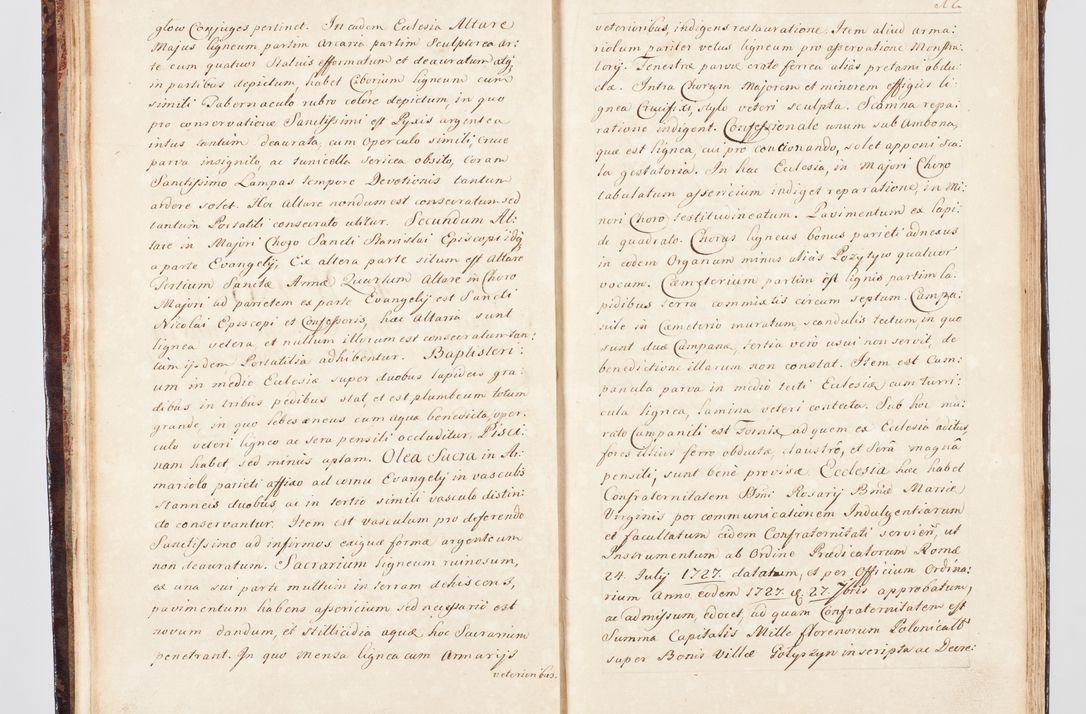 glow Conjuges pertinet. In eadem Eclesia Altare
Majus ligneum partim Arcaria partim Sculptorea ar:
te cum quatuor Statuis efformatum et deauratum atq;
in partibus depictum, habet Ciborium ligneum cum
simili Tabernaculo rubro colore depictum, in quo
pro conservatione Sanctissimi est Pyxis argentea
intus tantum deaurata, cum Operculo simili, Cruce
parva insignito, ac tunicella sericea obsito, Coram
Sanctissimo Lampas tempore Devotionis tantum
ardere solet. Hoc Altare nondum est consecratum sed
tantum Portatili consecrato utitur. Secundum Al:
tare in Majori Choro Sancti Stanislai Episcopi idq;
a parte Evangelij, Ex altera parte situm est Altare
Tertium Sanctæ Annæ Quartum Altare in Choro
Majori ad parietem ex parte Evangelij est Sancti
Nicolai Episcopi et Confessoris, hæc Altaria sunt
lignea vetera et nullum illorum est consecratum tan:
tum ijsdem Portatilia adhibentur. Baptisteri:
um in medio Eclesiæ super duobus lapideis gra:
dibus in tribus pedibus stat, et est plumbeum totum
grande, in quo lebes æneus cum aqua benedicta, oper:
culo veteri ligneo ac sera pensili occluditur, Pisci:
nam habet, sed minus aptam. Olea Sacra in Ar:
mariolo parieti affixo ad cornu Evangelij in vasculis
stanneis duobus, ac in tertio simili vasculo distin:
cto conservantur. Item est vasculum pro deferendo
Sanctissimo ad infirmos exiguæ formæ argenteum
non deauratum. Sacrarium ligneum ruinosum,
ex una sui parte multum in terram dehiscens,
pavimentum habens assericium sed necessario est
novum dandum, et stillicidia aquæ hoc Sacrarium
penetrant. In quo mensa lignea cum Armarijs
veterioribus.
veterioribus, indigens restauratione. Item aliud arma:
riolum pariter vetus ligneum pro asservatione Monstra:
torij. Fenestræ parvæ crate ferrea alias pretami obdu:
ctæ. Intra Chorum Majorem et minorem effigies li:
gnea Crucifixi, stylo veteri sculpta. Scamna repa:
ratione indigent. Confessionale unum sub Ambona,
quæ est lignea, cui pro concionando, solet apponi sca:
la gestatoria. In hac Eclesia, in Majori Choro
tabulatum assericium indiget reparatione, in Mi:
nori Choro testitudineatum. Pavimentum ex lapi:
de quadrato. Chorus ligneus bonus parieti adnexus
in eodem Organum minus alias Pozytyw quatuor
vocum. Cæmeterium partim est lignis partim la:
pidibus terra commixtis circum septum. Campa:
nile in Cæmeterio muratum, scandulis tectum, in quo
sunt duæ Campanæ, tertia vero usui non servit, de
benedictione illarum non constat. Item est Cam:
panula parva in medio tecti Eclesiæ cum turri:
cula lignea, lamina veteri contecta. Sub hoc mu:
rato Campanili est Fornix, ad quem ex Eclesia aditus,
fores illius ferro obductæ, claustrô, et Serâ magnâ
pensili, sunt benè provisæ Ecclesia hæc habet
Confraternitatem Smi Rosarij Bmæ Mariæ
Virginis per communicationem Indulgentiarum
et facultatum eidem Confraternitati servien, ut
Instrumentum ab Ordine Prædicatorum Romæ
24. Julij 1727. datatum, et per Officium Ordina:
rium Anno eodem 1727. 27. 7bris approbatum,
ac admissum, edocet, ad quam Confraternitatem est
Summa Capitalis Mille florenorum Polonicall
super Bonis Villæ Gołyszyn inscripta ac Decre: